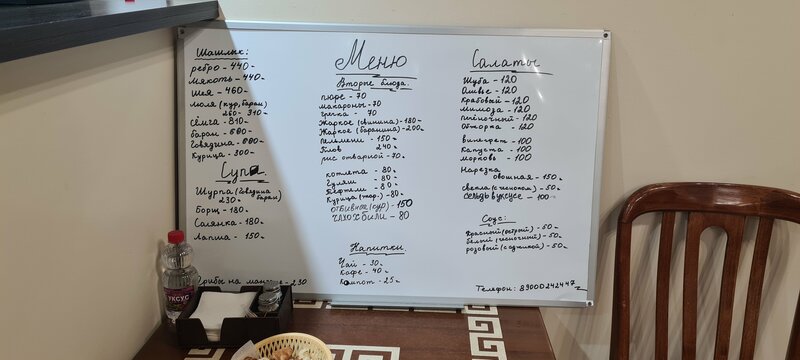 Меню
Шашлык:
ребро - 440
мякоть - 440
шея - 460
люля (кур, баран)
260 - 310
сёмга - 810
баран -
говядина -
курица - 300
Супа
Шурпа (говядина
баран)
230
Борщ - 180
Солянка - 180
Лапша - 150
Грибы на - 230
Вторые блюда.
пюре - 70
макароны - 70
гречка - 70
Жаркое (свинина) - 180
Жаркое (баранина) - 200
Пельмени - 150
Плов 240
рис отварной - 70
котлета - 80
Гуляш - 80
Тефтели - 80
Курица (жар.) - 80
отбивное (кур) - 150
ЧАХОХБИЛИ - 80
Напитки
Чай - 30
Кофе - 40
Компот - 25
Салаты
Шуба - 120
Оливье - 120
Крабовый - 120
Мимоза - 120
печёночный - 120
Обжорка - 120
винегрет - 100
Капуста - 100
Морковь - 100
Нарезка
овощная - 150
свекла (с чесноком) - 50
сельдь в уксусе - 100
Соус:
красный (острый) - 50
белый (чесночный) - 50
розовый (с аджикой) - 50
Телефон: 89000242447
УКСУС